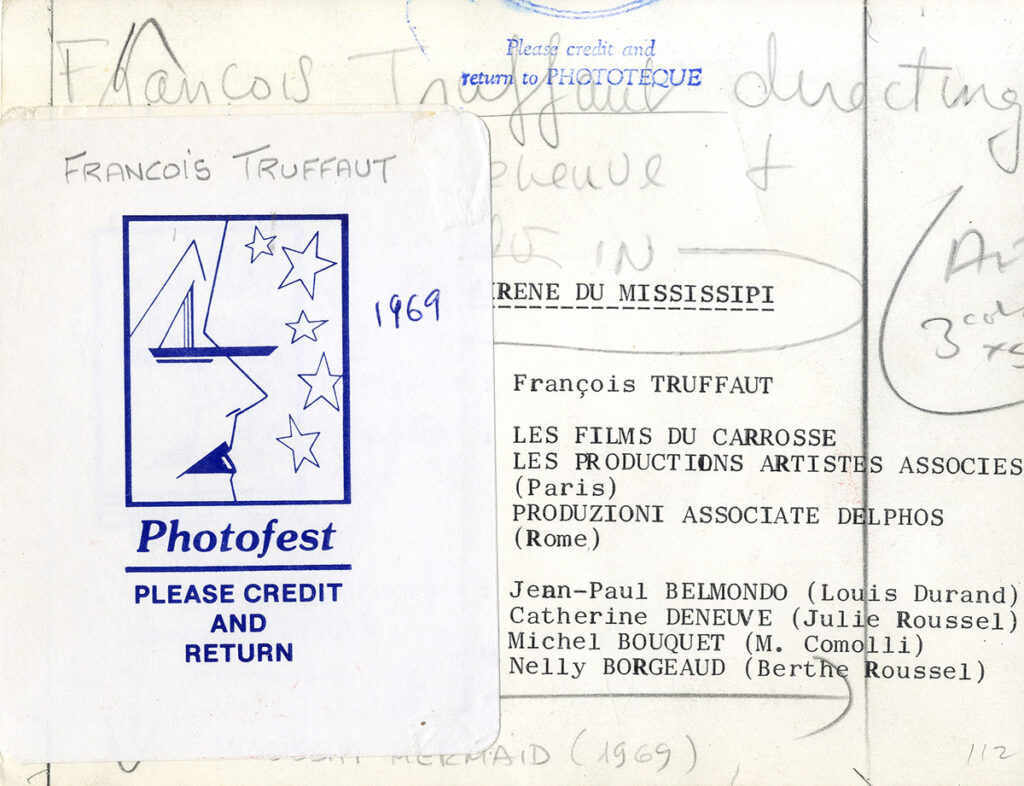 Please credit and
return to PHOTOTEQUE
Francois Truffaut directing
eneuve +
IN
FRANCOIS TRUFFAUT
1969
Photofest
PLEASE CREDIT
AND
RETURN
IRENE DU MISSISSIPI
3
François TRUFFAUT
LES FILMS DU CARROSSE
LES PRODUCTIONS ARTISTES ASSOCIES
(Paris)
PRODUZIONI ASSOCIATE DELPHOS
(Rome)
Jean-Paul BELMONDO (Louis Durand)
Catherine DENEUVE (Julie Roussel)
Michel BOUQUET (M. Comolli)
Nelly BORGEAUD (Berthe Roussel)
MERMAID (1969)
112